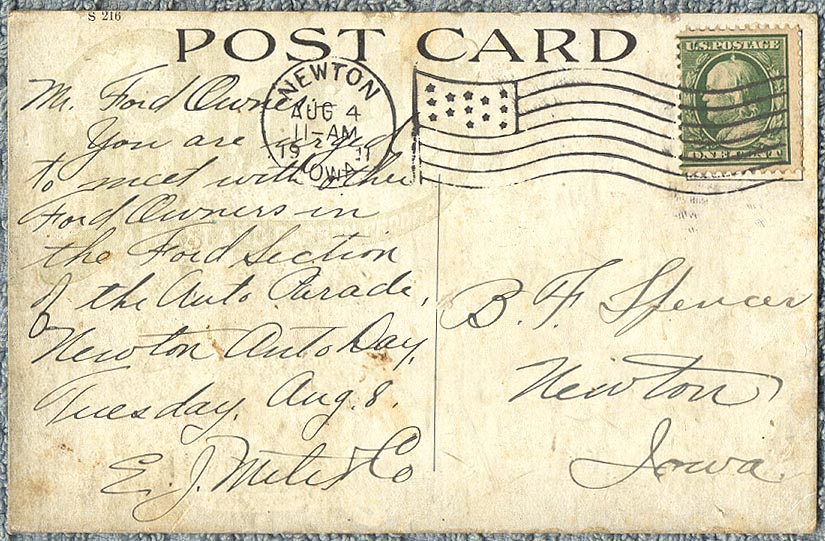 S 216
POST CARD
NEWTON
AUG 4
11-AM
19 11
IOWA
U.S. POSTAGE
ONE CENT
Mr. Ford Owner:-
You are urged
to meet with other
Ford Owners in
the Ford Section
of the Auto Parade,
Newton Auto Day,
Tuesday, Aug. 8.
E. J. Miles & Co
B. F. Spencer
Newton
Iowa.